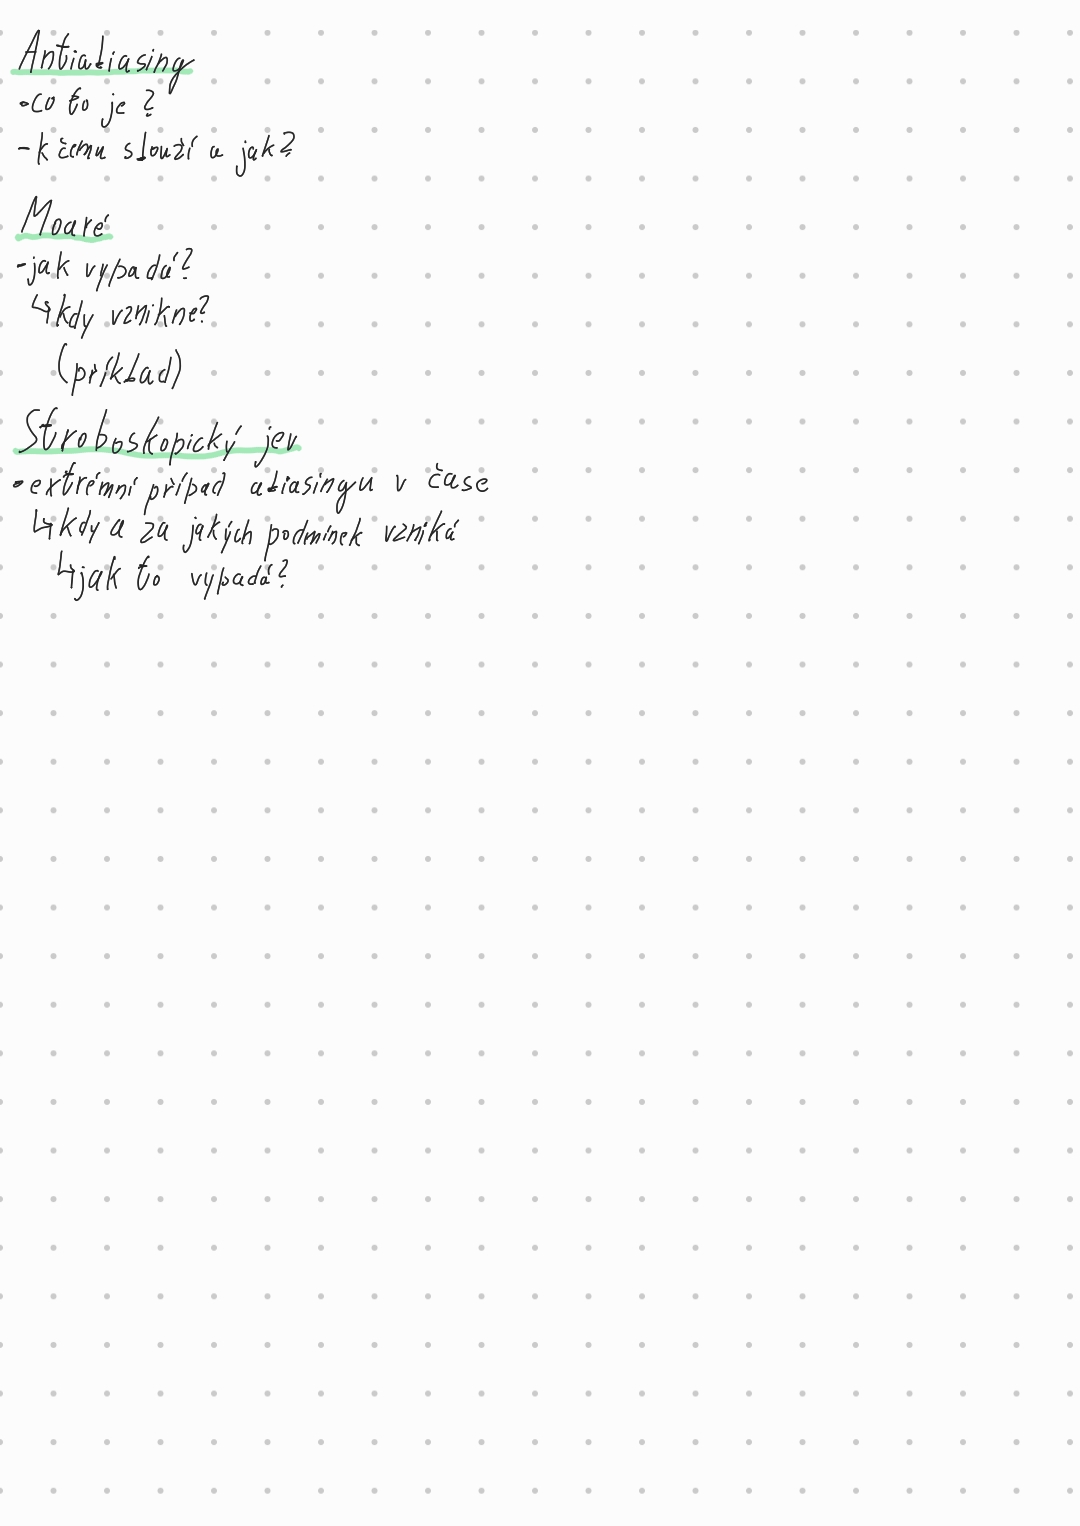 Antialiasing
•co to je?
-k čemu slouží a jak?
Moaré
-jak vypadá?
↳kdy vznikne?
(příklad)
Stroboskopický jev
•extrémní případ aliasingu v čase
↳kdy a za jakých podmínek vzniká
↳jak to vypadá?